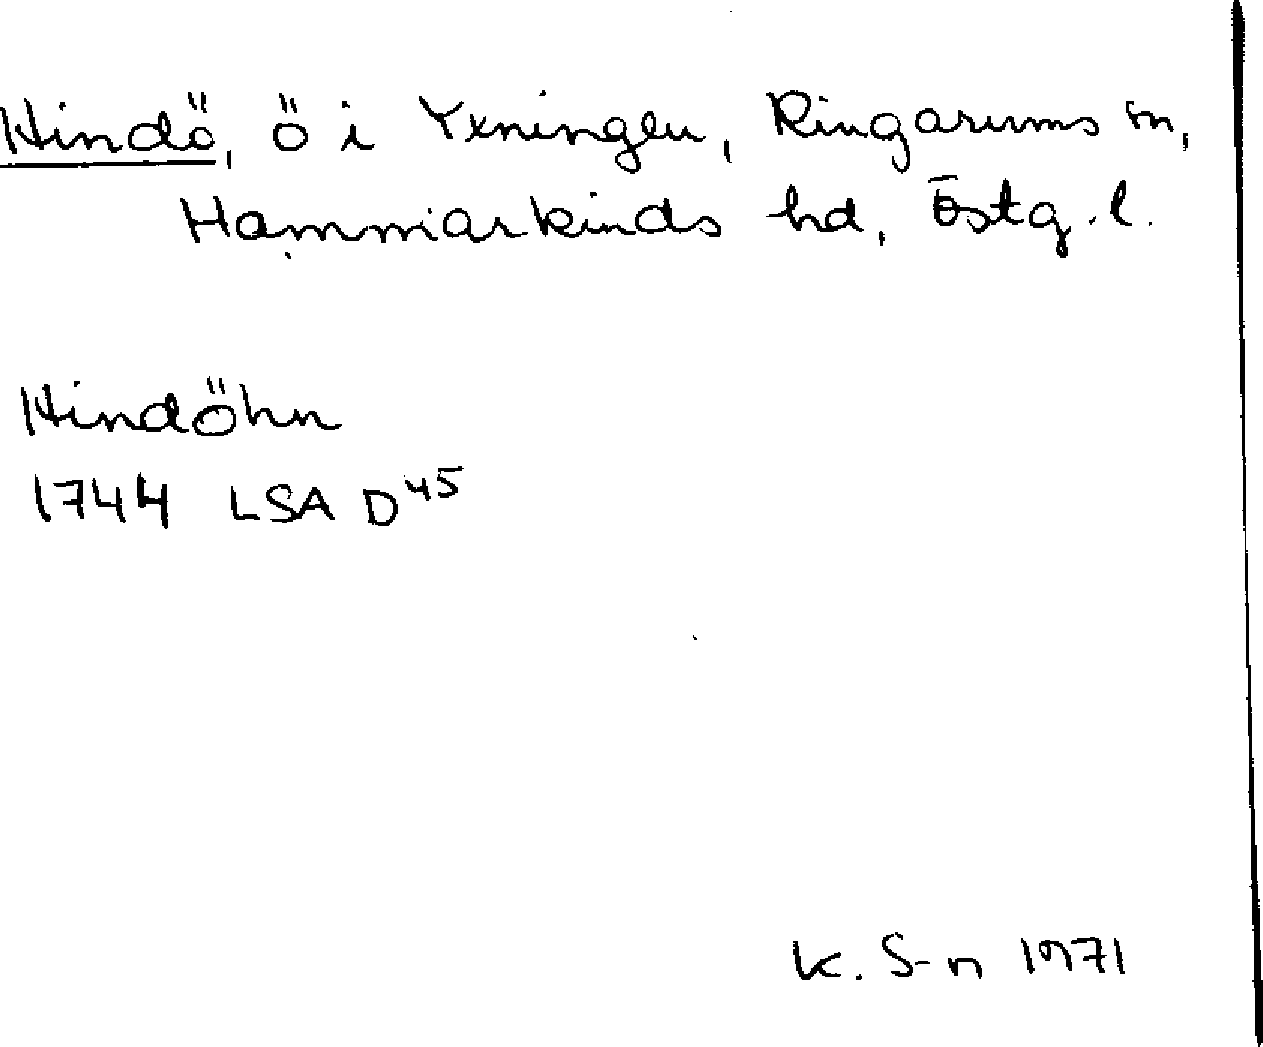 Hindö, ö i Yxningen, Ringarums sn,
Hammarkinds hd, Östg. l.
Hindöhn
1744 LSA D45
K. S-n 1971